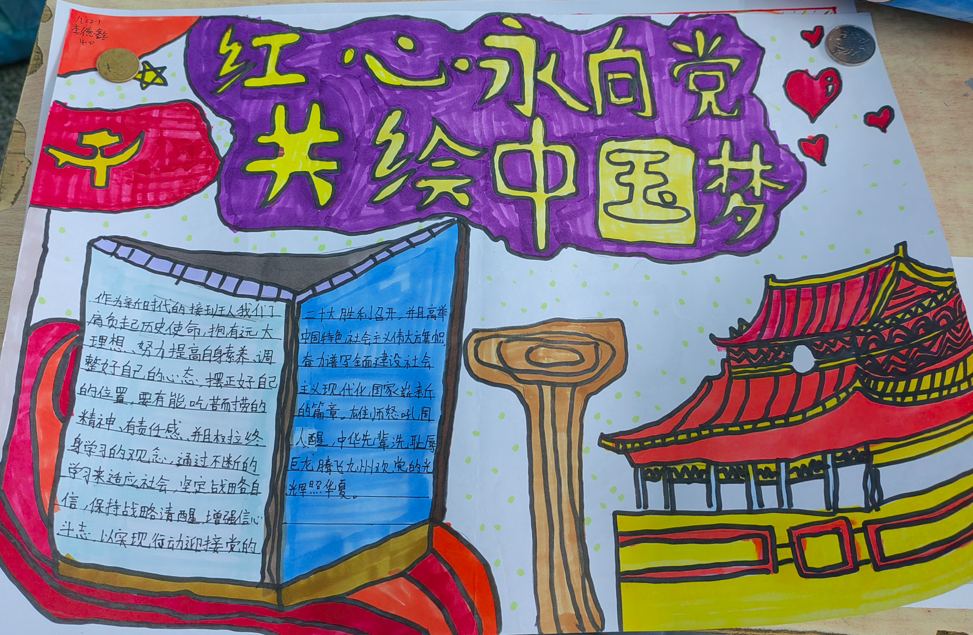 红心永向党
共绘中国梦
作为新时代的接班人我们了
肩负起历史使命,拥有远大
理想、努力提高自身素养、调
整好自己的心态、摆正好自己
的位置,要有能吃苦耐劳的
精神、有责任感、并且树立终
身学习的观念,通过不断的
学习来适应社会,坚定战略自
信,保持战略清醒,增强信心
斗志 以实现行动迎接党的
二十大胜利召开,并且高举
中国特色社会主义伟大旗帜
奋力谱写全面建设社会
主义现代化国家崭新
的篇章。雄师轻吼国
人醒,中华先辈洗耻辱
巨龙腾飞九州欢党的光
辉照华夏。